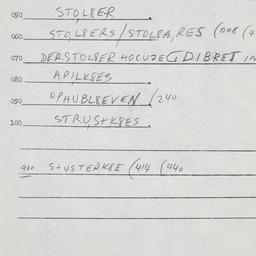 050 STOLBER
060 STO,LBERS/STOLBA,RES (008 (4
070 DERSTOLBER HOCUZE G DIBRET IN
080 APILKBES
090 OPHUBLBEVEN (240
100 STRUSTKBES
900 STUSTERKBE (414 (440